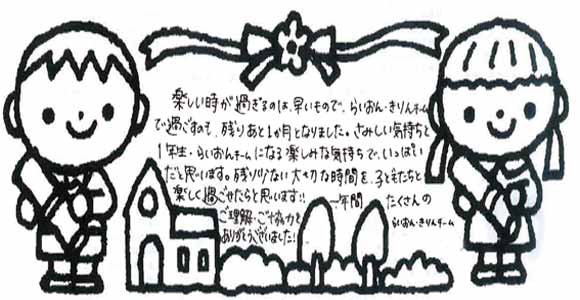 楽しい時が過ぎるのは、早いもので、らいおん・きりんチーム
で過ごすのも、残りあと1か月となりました。さみしい気持ちと
1年生・らいおんチームになる楽しみな気持ちで、いっぱい
だと思います。残り少ない大切な時間を、子どもたちと
楽しく過ごせたらと思います!! 一年間 たくさんの
ご理解・ご協力を らいおん・きりんチーム
ありがとうございました!